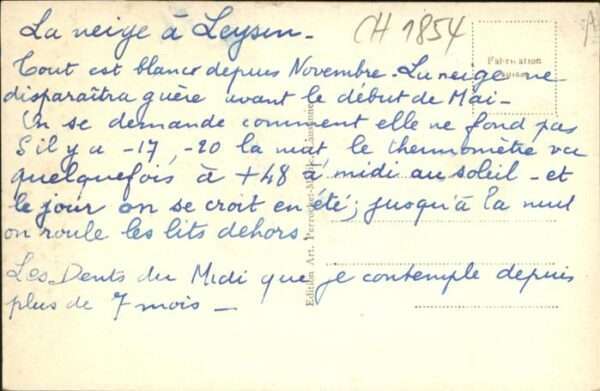 La neige à Leysin -
CH 1854
A
Fabrication
Tout est blanc depuis Novembre - La neige ne
disparaîtra guère avant le début de Mai -
On se demande comment elle ne fond pas
S'il y a -17, -20 la nuit le thermomètre va
quelquefois à +48 à midi au soleil - et
le jour on se croit en été; jusqu'à la nuit
on roule les lits dehors.
Les Dents du Midi que je contemple depuis
plus de 7 mois -
Edition Art. Perrochet-Lausanne